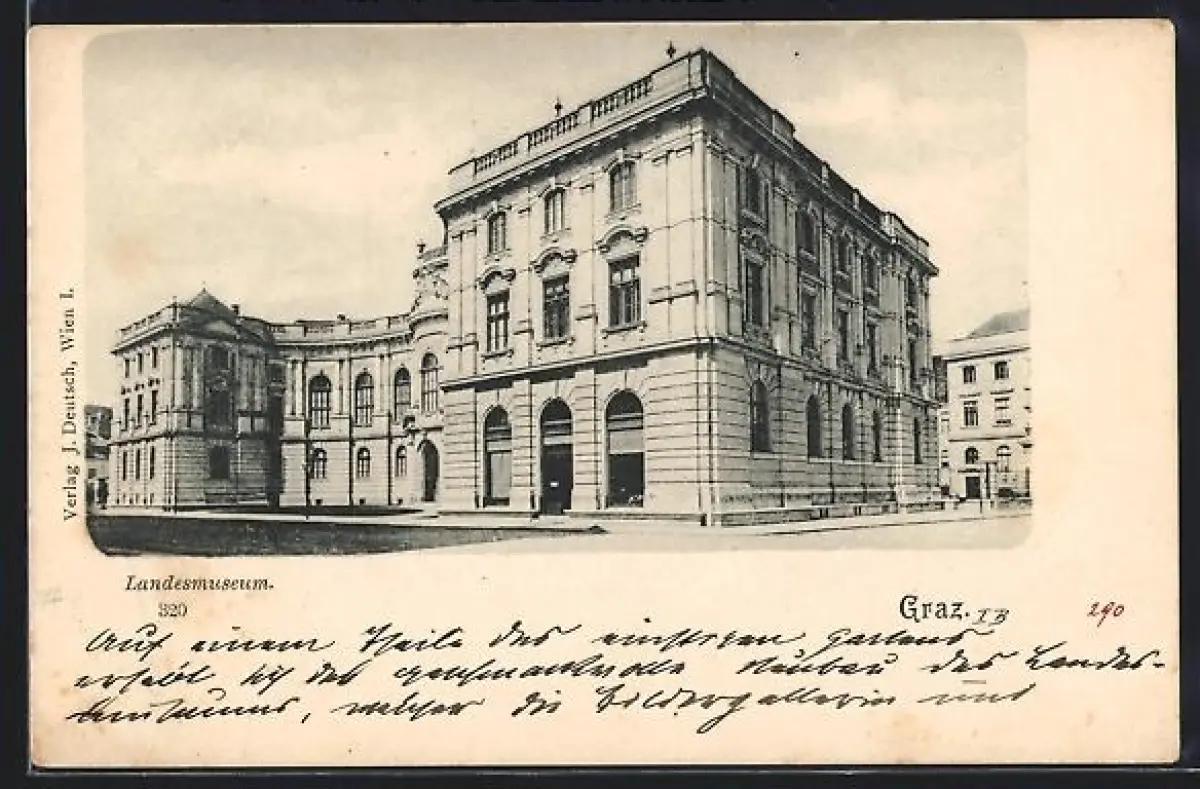 Verlag J. Deutsch, Wien I.
Landesmuseum.
320
Graz. IB
290
Auf einem Theile des einstigen Gartens
erhebt sich der geschmackvolle Neubau des Landes-
museums, welcher die Bildergallerie und